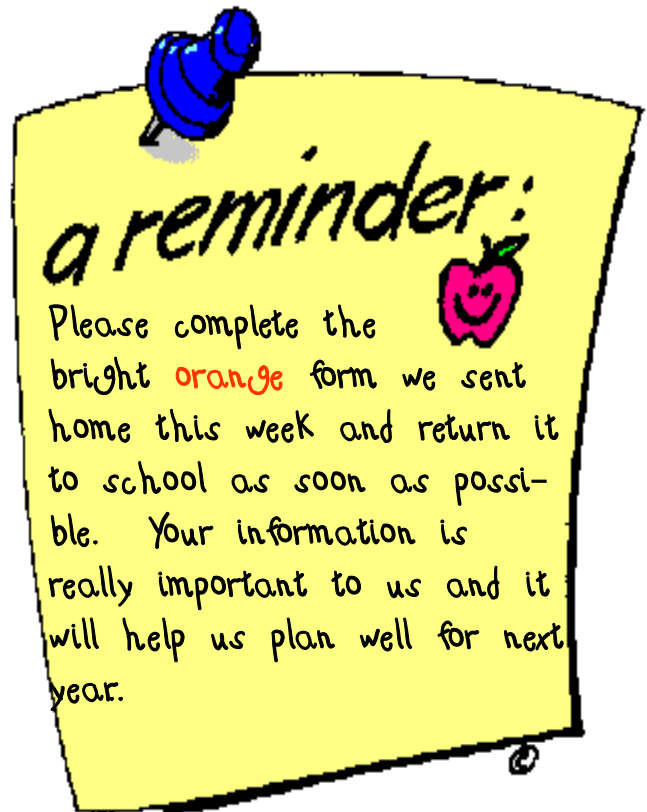 a reminder:
Please complete the
bright orange form we sent
home this week and return it
to school as soon as possi-
ble. Your information is
really important to us and it
will help us plan well for next
year.
©